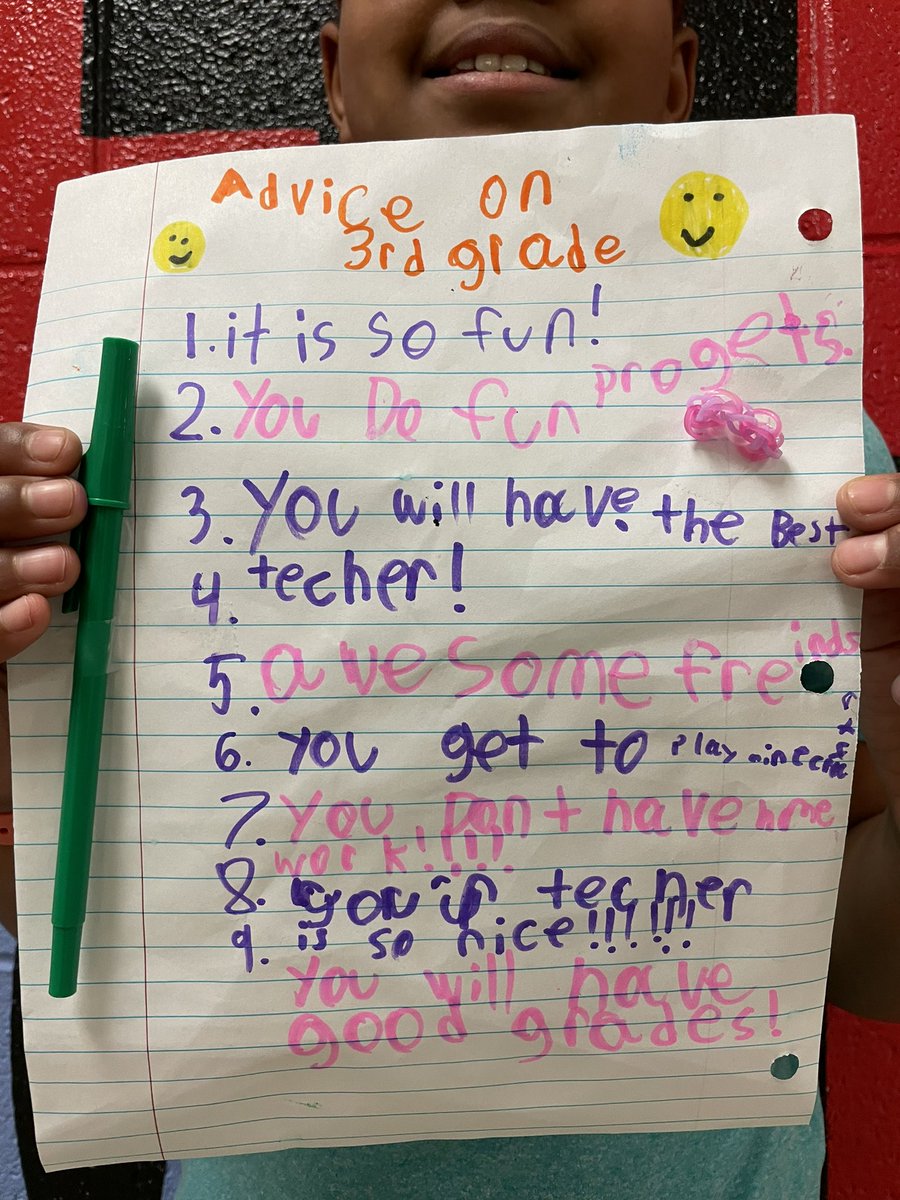 Advice on
3rd grade
1. it is so fun!
2. You Do fun progets.
3. You will have the Best
4. techer!
5. awesome freinds
6. You get to Play minecraf
7. You Don+ have home
work!!!!!
8. your techer
9. is so nice!!!!!!
You will have
good grades!